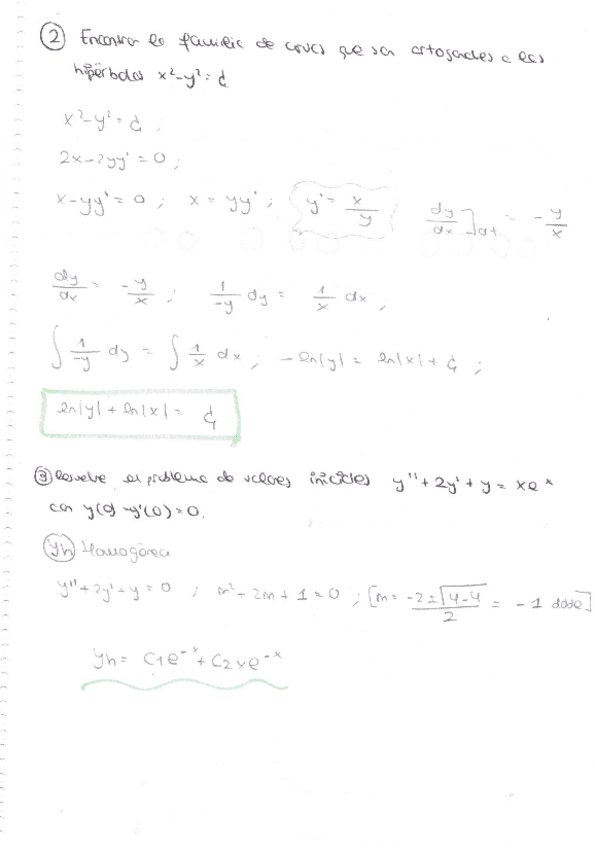 ② Encontrar la familia de curvas que son ortogonales a las
hipérbolas x²-y² = C₁
x²-y² = C₁ ;
2x-2yy' = 0 ;
x-yy' = 0 ; x = yy' ; y' = x/y   dy/dx]o.t. = -y/x
dy/dx = -y/x ; 1/-y dy = 1/x dx ;
∫ 1/-y dy = ∫ 1/x dx ; -ln|y| = ln|x| + C₁ ;
ln|y| + ln|x| = C₁
③ Resuelve el problema de valores iniciales y'' + 2y' + y = xeˣ
con y(0) = y'(0) = 0.
yh Homogénea
y'' + 2y' + y = 0 ; m² - 2m + 1 = 0 ; [m = -2±√4-4/2 = -1 doble]
yh = C₁e⁻ˣ + C₂xe⁻ˣ